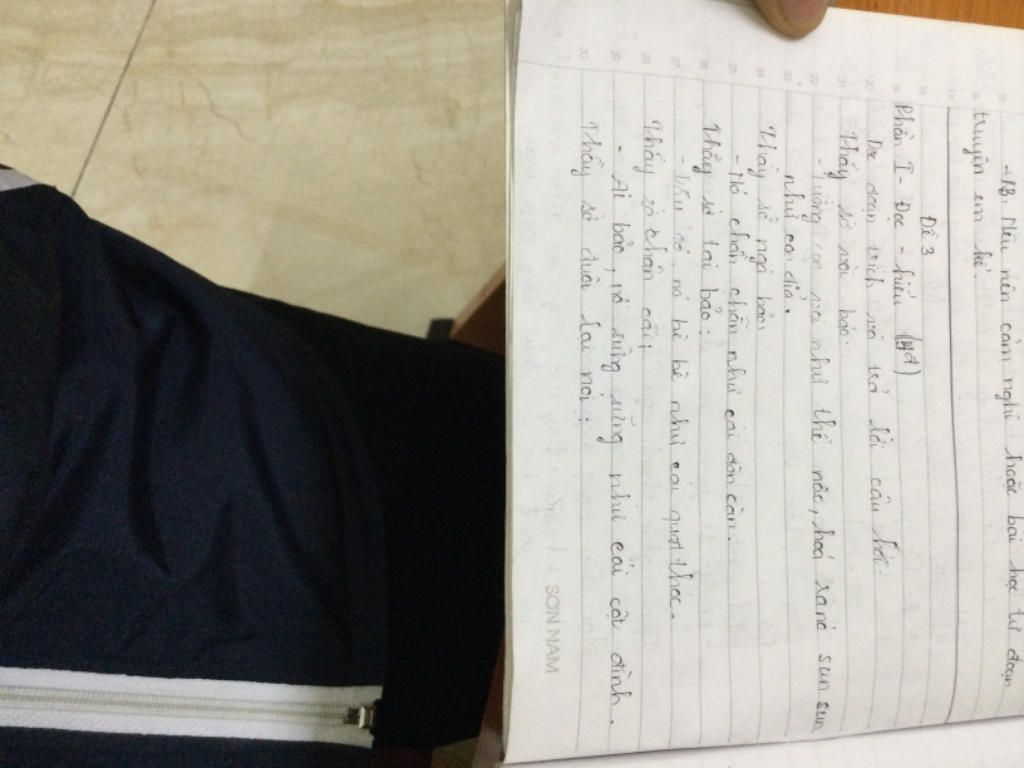 -1B. Nêu nên cảm nghĩ hoặc bài học từ đoạn
truyện em kể.
Đề 3
Phần I - Đọc - hiểu (4đ)
Đọc đoạn trích và trả lời câu hỏi:
Thầy sờ vòi bảo:
- Tưởng con voi như thế nào, hoá ra nó sun sun
như con đỉa.
Thầy sờ ngà bảo:
- Nó chần chẫn như cái đòn càn.
Thầy sờ tai bảo:
- nó bè bè như cái quạt thóc.
Thầy sờ chân cãi:
- Ai bảo, nó sừng sững như cái cột đình.
Thầy sờ đuôi lại nói:
SƠN NAM